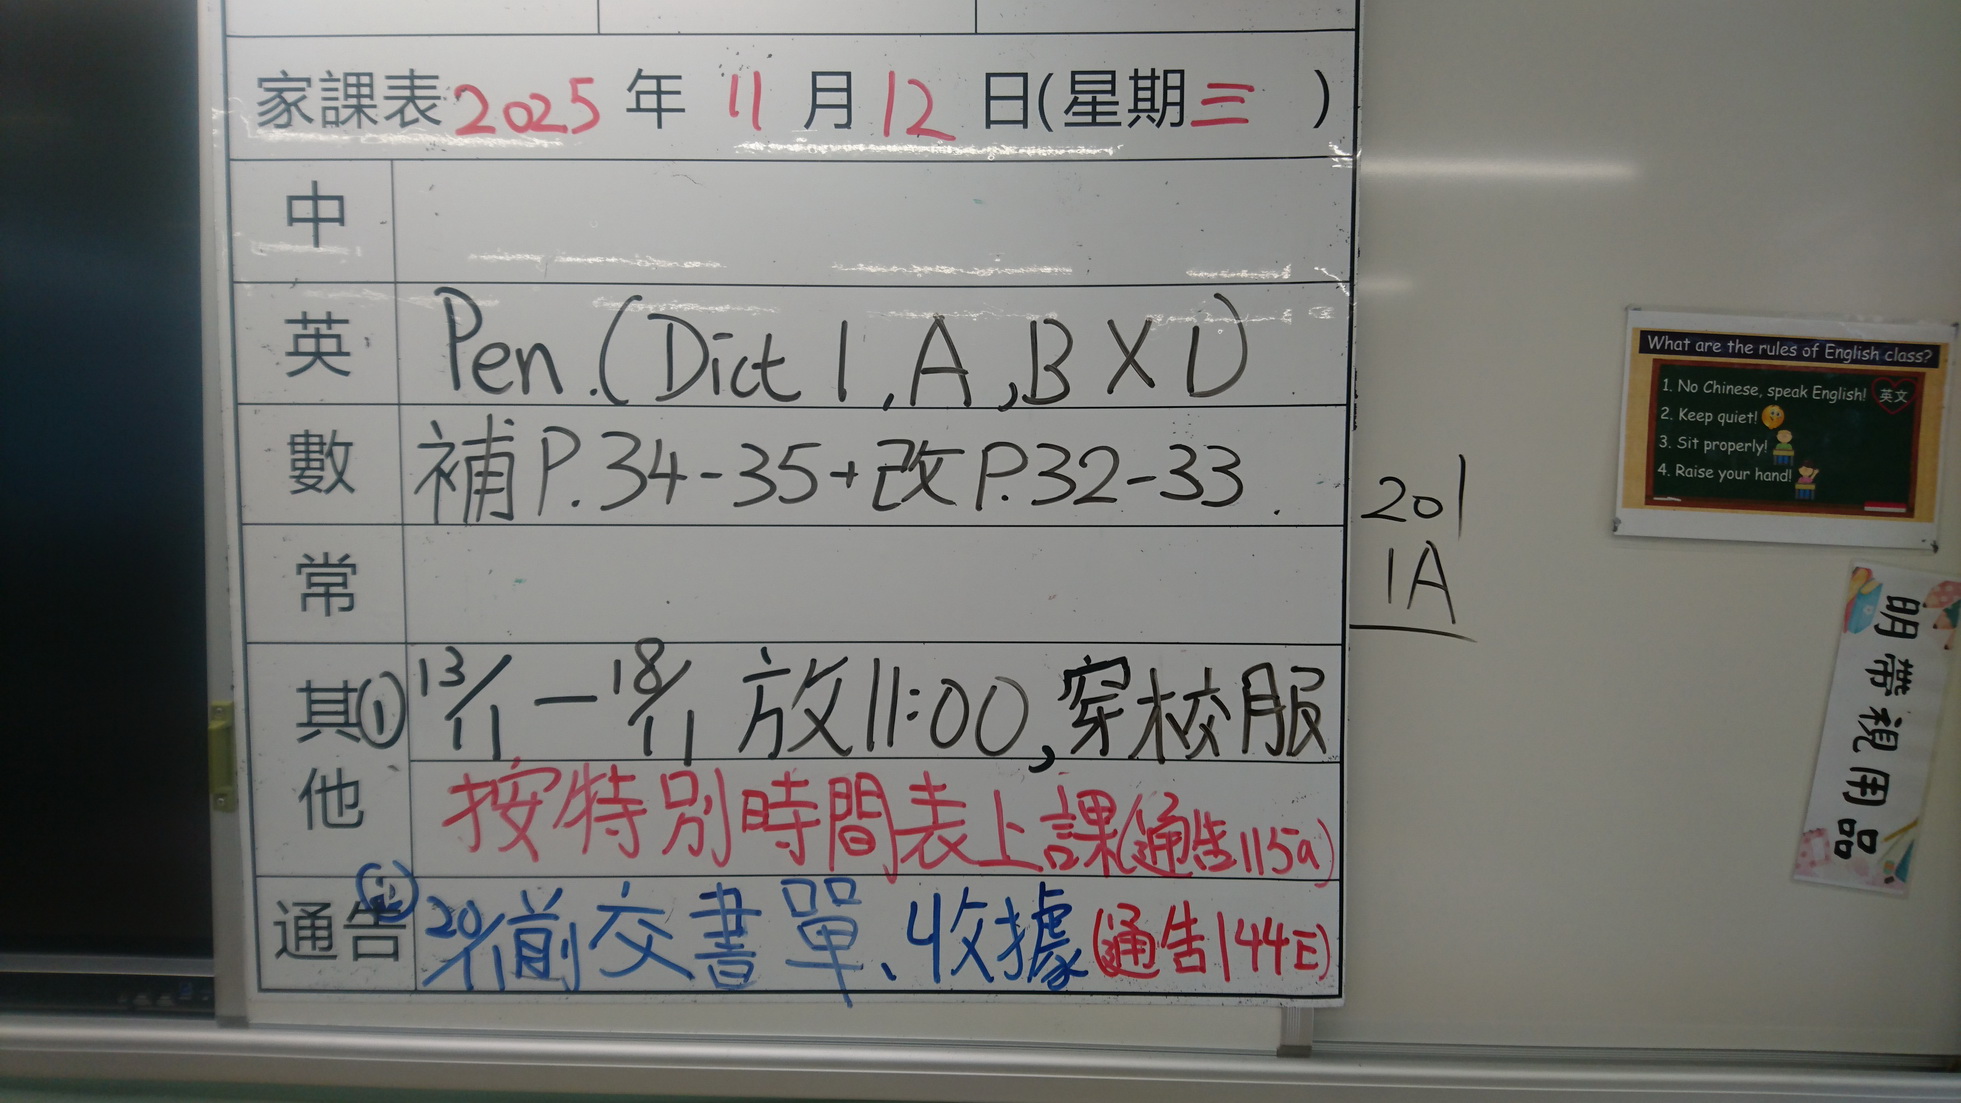 家課表2025年 11月12日(星期三)
中
英 Pen.(Dict 1, A, B X1)
數 補P.34-35+改P.32-33.
常
其他 ① 13/11-18/11 放11:00,穿校服
按特別時間表上課(通告115a)
通告 ② 20/11前交書單、收據(通告144E)
201
1A
What are the rules of English class?
1. No Chinese, speak English! 英文
2. Keep quiet!
3. Sit properly!
4. Raise your hand!
明帶視用品